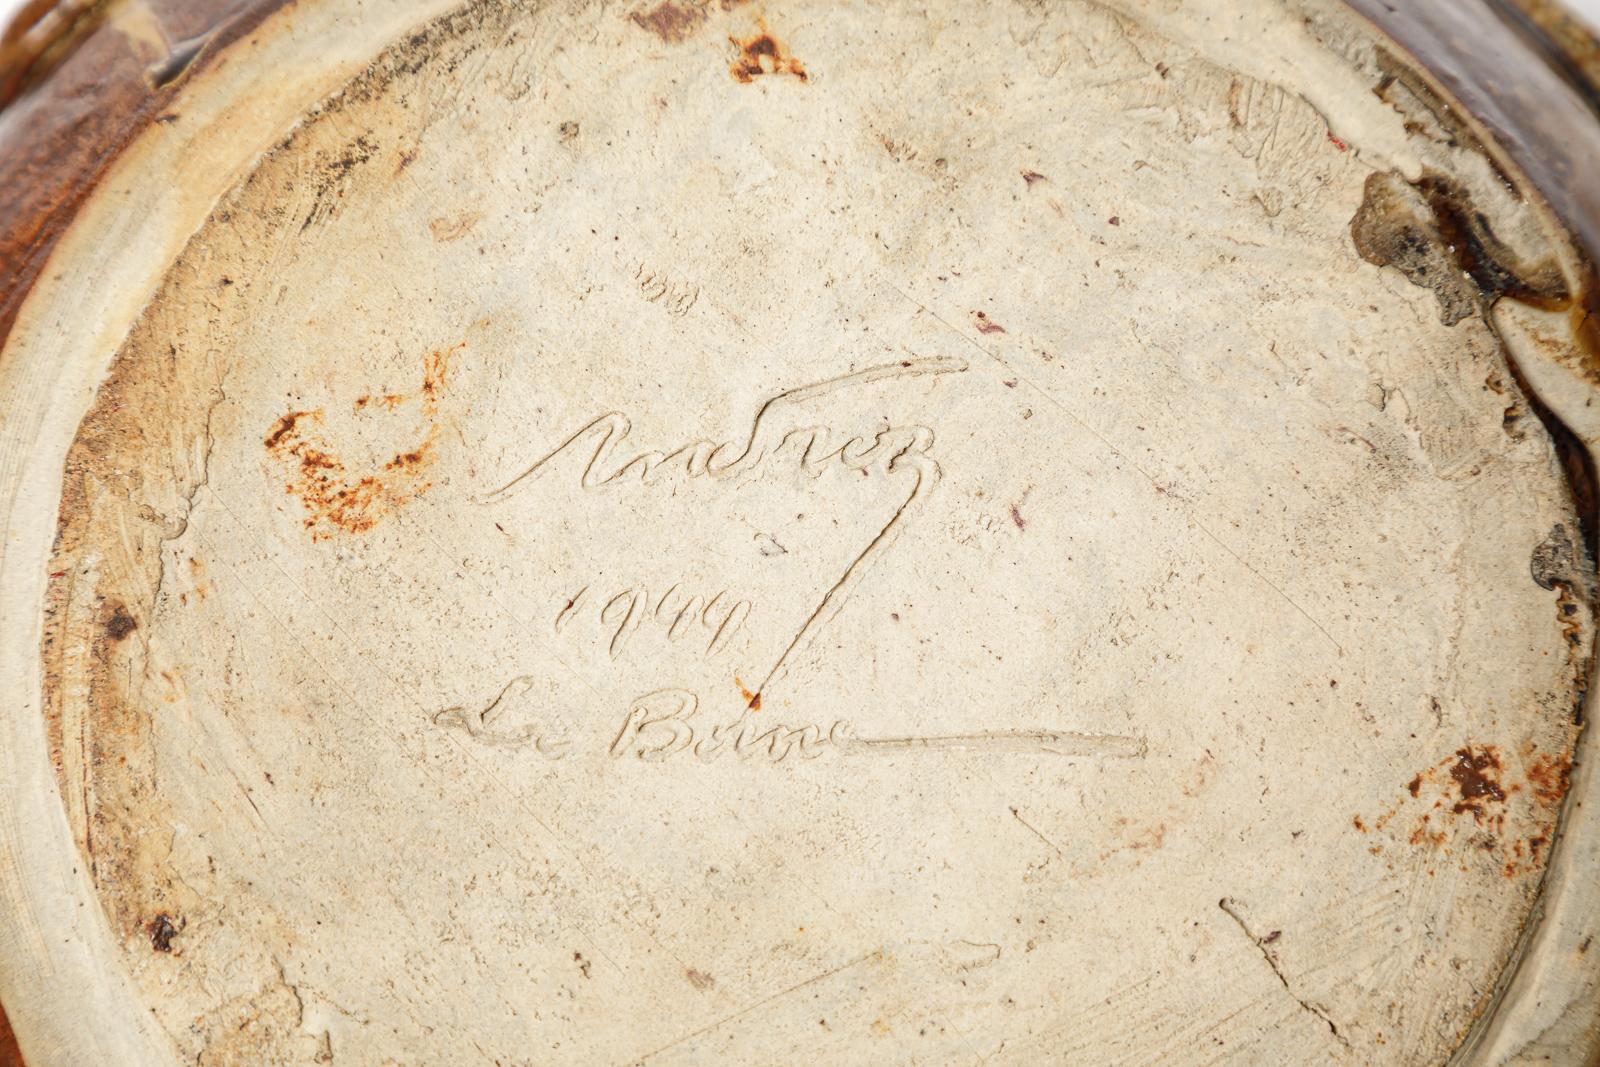 Andrez
1944
Le Borne